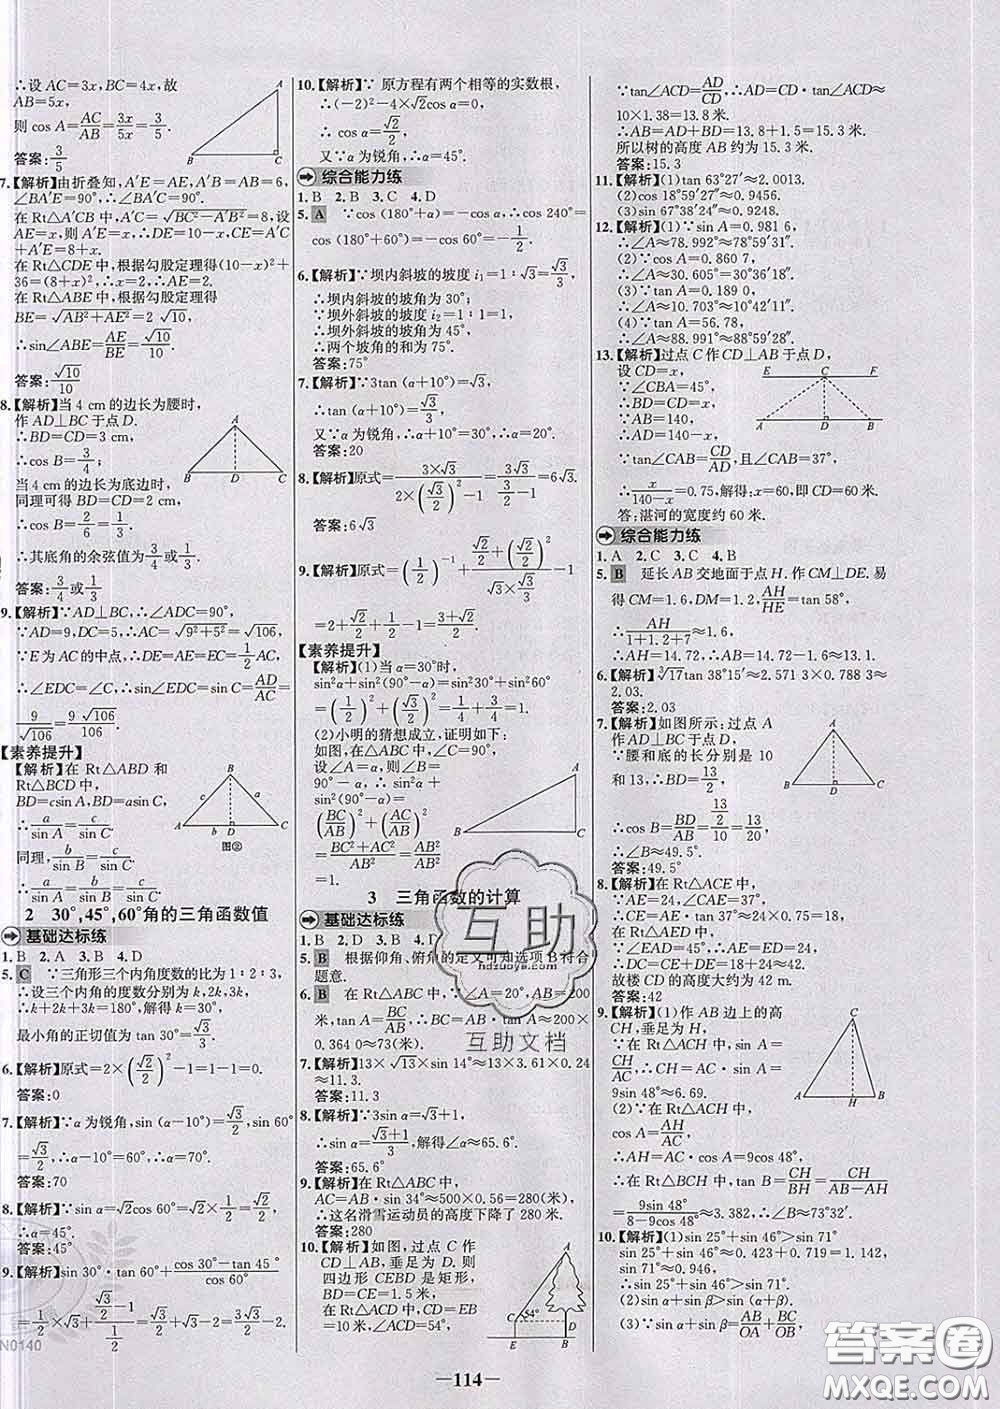 ∴设 AC=3x,BC=4x,故
AB=5x,
则 cos A=AC/AB=3x/5x=3/5.
答案:3/5
B C
7.【解析】由折叠知,A′E=AE,A′B=AB=6,
∠BA′E=90°,∴∠BA′C=90°.
在 Rt△A′CB 中,A′C=√(BC²−A′B²)=8,设
AE=x,则 A′E=x,∴DE=10−x,CE=
A′C+A′E=8+x.
在 Rt△CDE 中,根据勾股定理得(10−x)²+
36=(8+x)²,∴x=2,∴AE=2.
在 Rt△ABE 中,根据勾股定理得
BE=√(AB²+AE²)=2√10,
∴sin∠ABE=AE/BE=√10/10.
答案:√10/10
8.【解析】当 4 cm 的边长为腰时,
作 AD⊥BC 于点 D.
∴BD=CD=3 cm,
∴cos B=3/4;
当 4 cm 的边长为底边时,
同理可得 BD=CD=2 cm,
∴cos B=2/6=1/3.
∴其底角的余弦值为3/4或1/3.
答案:3/4或1/3
A
B D C
9.【解析】∵AD⊥BC,∴∠ADC=90°,
∵AD=9,DC=5,∴AC=√(9²+5²)=√106,
∵E为 AC 的中点,∴DE=AE=EC=1/2AC
∴∠EDC=∠C,∴sin∠EDC=sin∠C=AD/AC=
9/√106=9√106/106.
【素养提升】
【解析】在 Rt△ABD 和
Rt△BCD 中,
BD=csin A,BD=asin C,
∴a/sin A=c/sin C.
同理,b/sin B=c/sin C,
∴a/sin A=b/sin B=c/sin C.
B
c a
A b D C
图②
2 30°,45°,60°角的三角函数值
基础达标练
1.B 2.A 3.B 4.B
5. C ∵三角形三个内角度数的比为 1∶2∶3,
∴设三个内角的度数分别为 k,2k,3k,
∴k+2k+3k=180°,解得 k=30°,
最小角的正切值为 tan 30°=√3/3.
6.【解析】原式=2×(√2/2)²−1=1−1=0.
答案:0
7.【解析】∵α为锐角,sin (α−10°)=√3/2,sin 60°
=√3/2,∴α−10°=60°,∴α=70°.
答案:70
8.【解析】∵sin α=√2cos 60°=√2×1/2=√2/2,
∴α=45°.
答案:45°
9.【解析】sin 30°·tan 60°+(cos 30°−tan 45°)/cos 60°
=1/2×√3+(√3/2−1)/(1/2)=√3/2+√3−2=3√3/2−2.
10.【解析】∵ 原方程有两个相等的实数根,
∴(−2)²−4×√2cos α=0,
∴ cos α=√2/2,
又∵α为锐角,∴α=45°.
综合能力练
1.B 2.B 3.C 4.D
5. A ∵cos (180°+α)=−cos α,∴cos 240°=
cos (180°+60°)=−cos 60°=−1/2.
6.【解析】∵坝内斜坡的坡度 i₁=1∶√3=√3/3,
∴坝内斜坡的坡角为 30°;
∵坝外斜坡的坡度 i₂=1∶1=1,
∴坝外斜坡的坡角为 45°,
∴两个坡角的和为 75°.
答案:75°
7.【解析】∵3tan (α+10°)=√3,
∴tan (α+10°)=√3/3,
又∵α为锐角,∴α+10°=30°,∴α=20°.
答案:20
8.【解析】原式=3×√3/(2×(√3/2)²−1)=3√3/(3/2−1)=6√3.
答案:6√3
9.【解析】原式=(1/2)⁻¹+(√2/2+(√2/2)²)/(√3×√3/3)−1/2
=2+√2/2+1/2−1/2=2+√2/2.
【素养提升】
【解析】(1)当 α=30°时,
sin²α+sin²(90°−α)=sin²30°+sin²60°
=(1/2)²+(√3/2)²=1/4+3/4=1.
(2)小明的猜想成立,证明如下:
如图,在△ABC 中,∠C=90°,
设∠A=α,则∠B=
90°−α,∴ sin²α+
sin²(90°−α)=
(BC/AB)²+(AC/AB)²
=(BC²+AC²)/AB²=AB²/AB²=
1.
A
B C
3 三角函数的计算
基础达标练
1.B 2.D 3.D 4.D
5. B 根据仰角、俯角的定义可知选项 B 符合
题意.
6. B 在 Rt△ABC 中,∵∠A=20°,AB=200
米,tan A=BC/AB,∴BC=AB·tan A≈200×
0.364 0≈73(米).
7.【解析】13×√13×sin 14°≈13×3.61×0.24
≈11.3.
答案:11.3
8.【解析】∵3sin α=√3+1,
∴sin α=(√3+1)/3,解得∠α≈65.6°.
答案:65.6°
9.【解析】在 Rt△ABC 中,
AC=AB·sin 34°≈500×0.56=280(米),
∴这名滑雪运动员的高度下降了 280 米.
答案:280
10.【解析】如图,过点 C 作
CD⊥AB,垂足为 D.则
四边形 CEBD 是矩形,
BD=CE=1.5 米,
在 Rt△ACD 中,CD=EB
=10 米,∠ACD=54°,
A
C 54° D
E B
∵tan∠ACD=AD/CD,∴AD=CD·tan∠ACD≈
10×1.38=13.8 米.
∴AB=AD+BD=13.8+1.5=15.3 米.
所以树的高度 AB 约为 15.3 米.
答案:15.3
11.【解析】(1)tan 63°27′≈2.0013.
(2)cos 18°59′27″≈0.9456.
(3)sin 67°38′24″≈0.9248.
12.【解析】(1)∵sin A=0.981 6,
∴∠A≈78.992°≈78°59′31″.
(2)∵cos A=0.860 7,
∴∠A≈30.605°≈30°36′18″.
(3)∵tan A=0.189 0,
∴∠A≈10.703°≈10°42′11″.
(4)∵tan A=56.78,
∴∠A≈88.991°≈88°59′28″.
13.【解析】过点 C 作 CD⊥AB 于点 D,
设 CD=x,
∵∠CBA=45°,
∴BD=CD=x,
∵AB=140,
∴AD=140−x,
∵tan∠CAB=CD/AD,且∠CAB=37°,
∴x/(140−x)≈0.75,解得:x=60,即 CD=60 米.
答:湛河的宽度约 60 米.
E C F
A D B
综合能力练
1.A 2.C 3.C 4.B
5. B 延长 AB 交地面于点 H.作 CM⊥DE.易
得 CM=1.6,DM=1.2,∵AH/HE=tan 58°,
∴AH/(1+1.2+7)≈1.6,
∴AH=14.72,∴AB=14.72−1.6≈13.1.
6.【解析】³√17tan 38°15′≈2.571 3×0.788 3≈
2.03.
答案:2.03
7.【解析】如图所示:过点 A
作 AD⊥BC 于点 D.
∵腰和底的长分别是 10
和 13,∴BD=13/2,
∴cos B=BD/AB=(13/2)/10=13/20,
∴∠B≈49.5°.
答案:49.5°
A
B D C
8.【解析】在 Rt△ACE 中,
∵AE=24,∠CAE=37°,
∴CE=AE·tan 37°≈24×0.75=18.
在 Rt△AED 中,
∵∠EAD=45°,∴AE=ED=24,
∴DC=CE+DE≈18+24=42.
故楼 CD 的高度大约为 42 m.
答案:42
9.【解析】(1)作 AB 边上的高
CH,垂足为 H,
∵在 Rt△ACH 中,sin A=
CH/AC,∴CH=AC·sin A=
9sin 48°≈6.69.
(2)∵在 Rt△ACH 中,
cos A=AH/AC,
∴AH=AC·cos A=9cos 48°.
∴在 Rt△BCH 中,tan B=CH/BH=CH/(AB−AH)=
9sin 48°/(8−9cos 48°)≈3.382,∴∠B≈73°32′.
C
A H B
10.【解析】(1)sin 25°+sin 46°>sin 71°
sin 25°+sin 46°≈0.423+0.719=1.142,
sin 71°≈0.946,
∴sin 25°+sin 46°>sin 71°.
(2)sin α+sin β>sin(α+β).
(3)∵sin α+sin β=AB/OA+BC/OB,
互助
hdzuoye.com
互助文档
N0140
—114—
答案圈
MXQE.COM